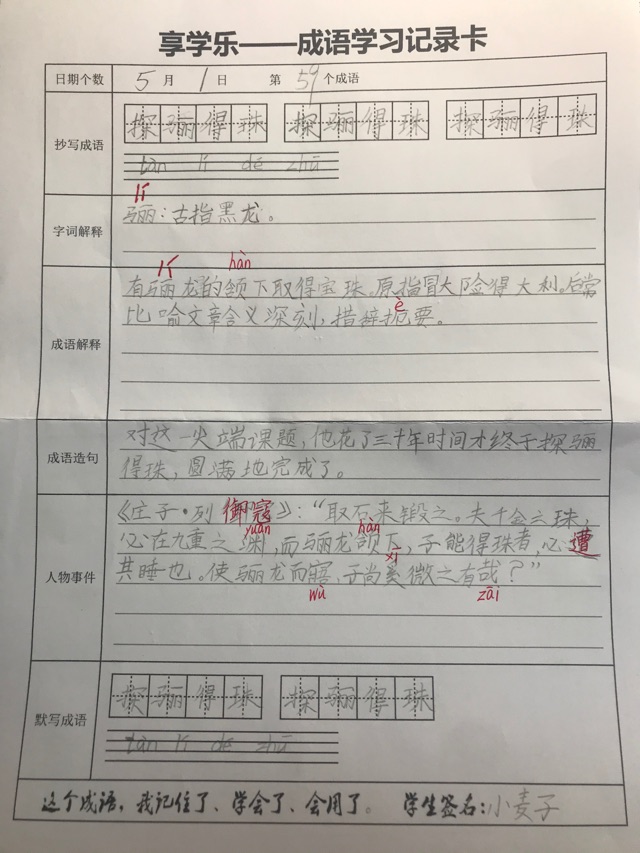 享学乐——成语学习记录卡
日期个数 5月1日 第59个成语
抄写成语 探骊得珠 探骊得珠 探骊得珠
tàn lí dé zhū
lí
字词解释 骊:古指黑龙。
lí hàn
有骊龙的颔下取得宝珠。原指冒大险得大利。后常
成语解释 比喻文章含义深刻,措辞扼要。
è
成语造句 对这一尖端课题,他花了三十年时间才终于探骊
得珠,圆满地完成了。
人物事件 《庄子·列御寇》:“取石来锻之。夫千金之珠,
yuān hàn
必在九重之渊,而骊龙颔下,子能得珠者,必遭
xī
其睡也。使骊龙而寤,子尚奚微之有哉?”
wù zāi
默写成语 探骊得珠 探骊得珠
tàn lí dé zhū
这个成语,我记住了、学会了、会用了。 学生签名:小麦子